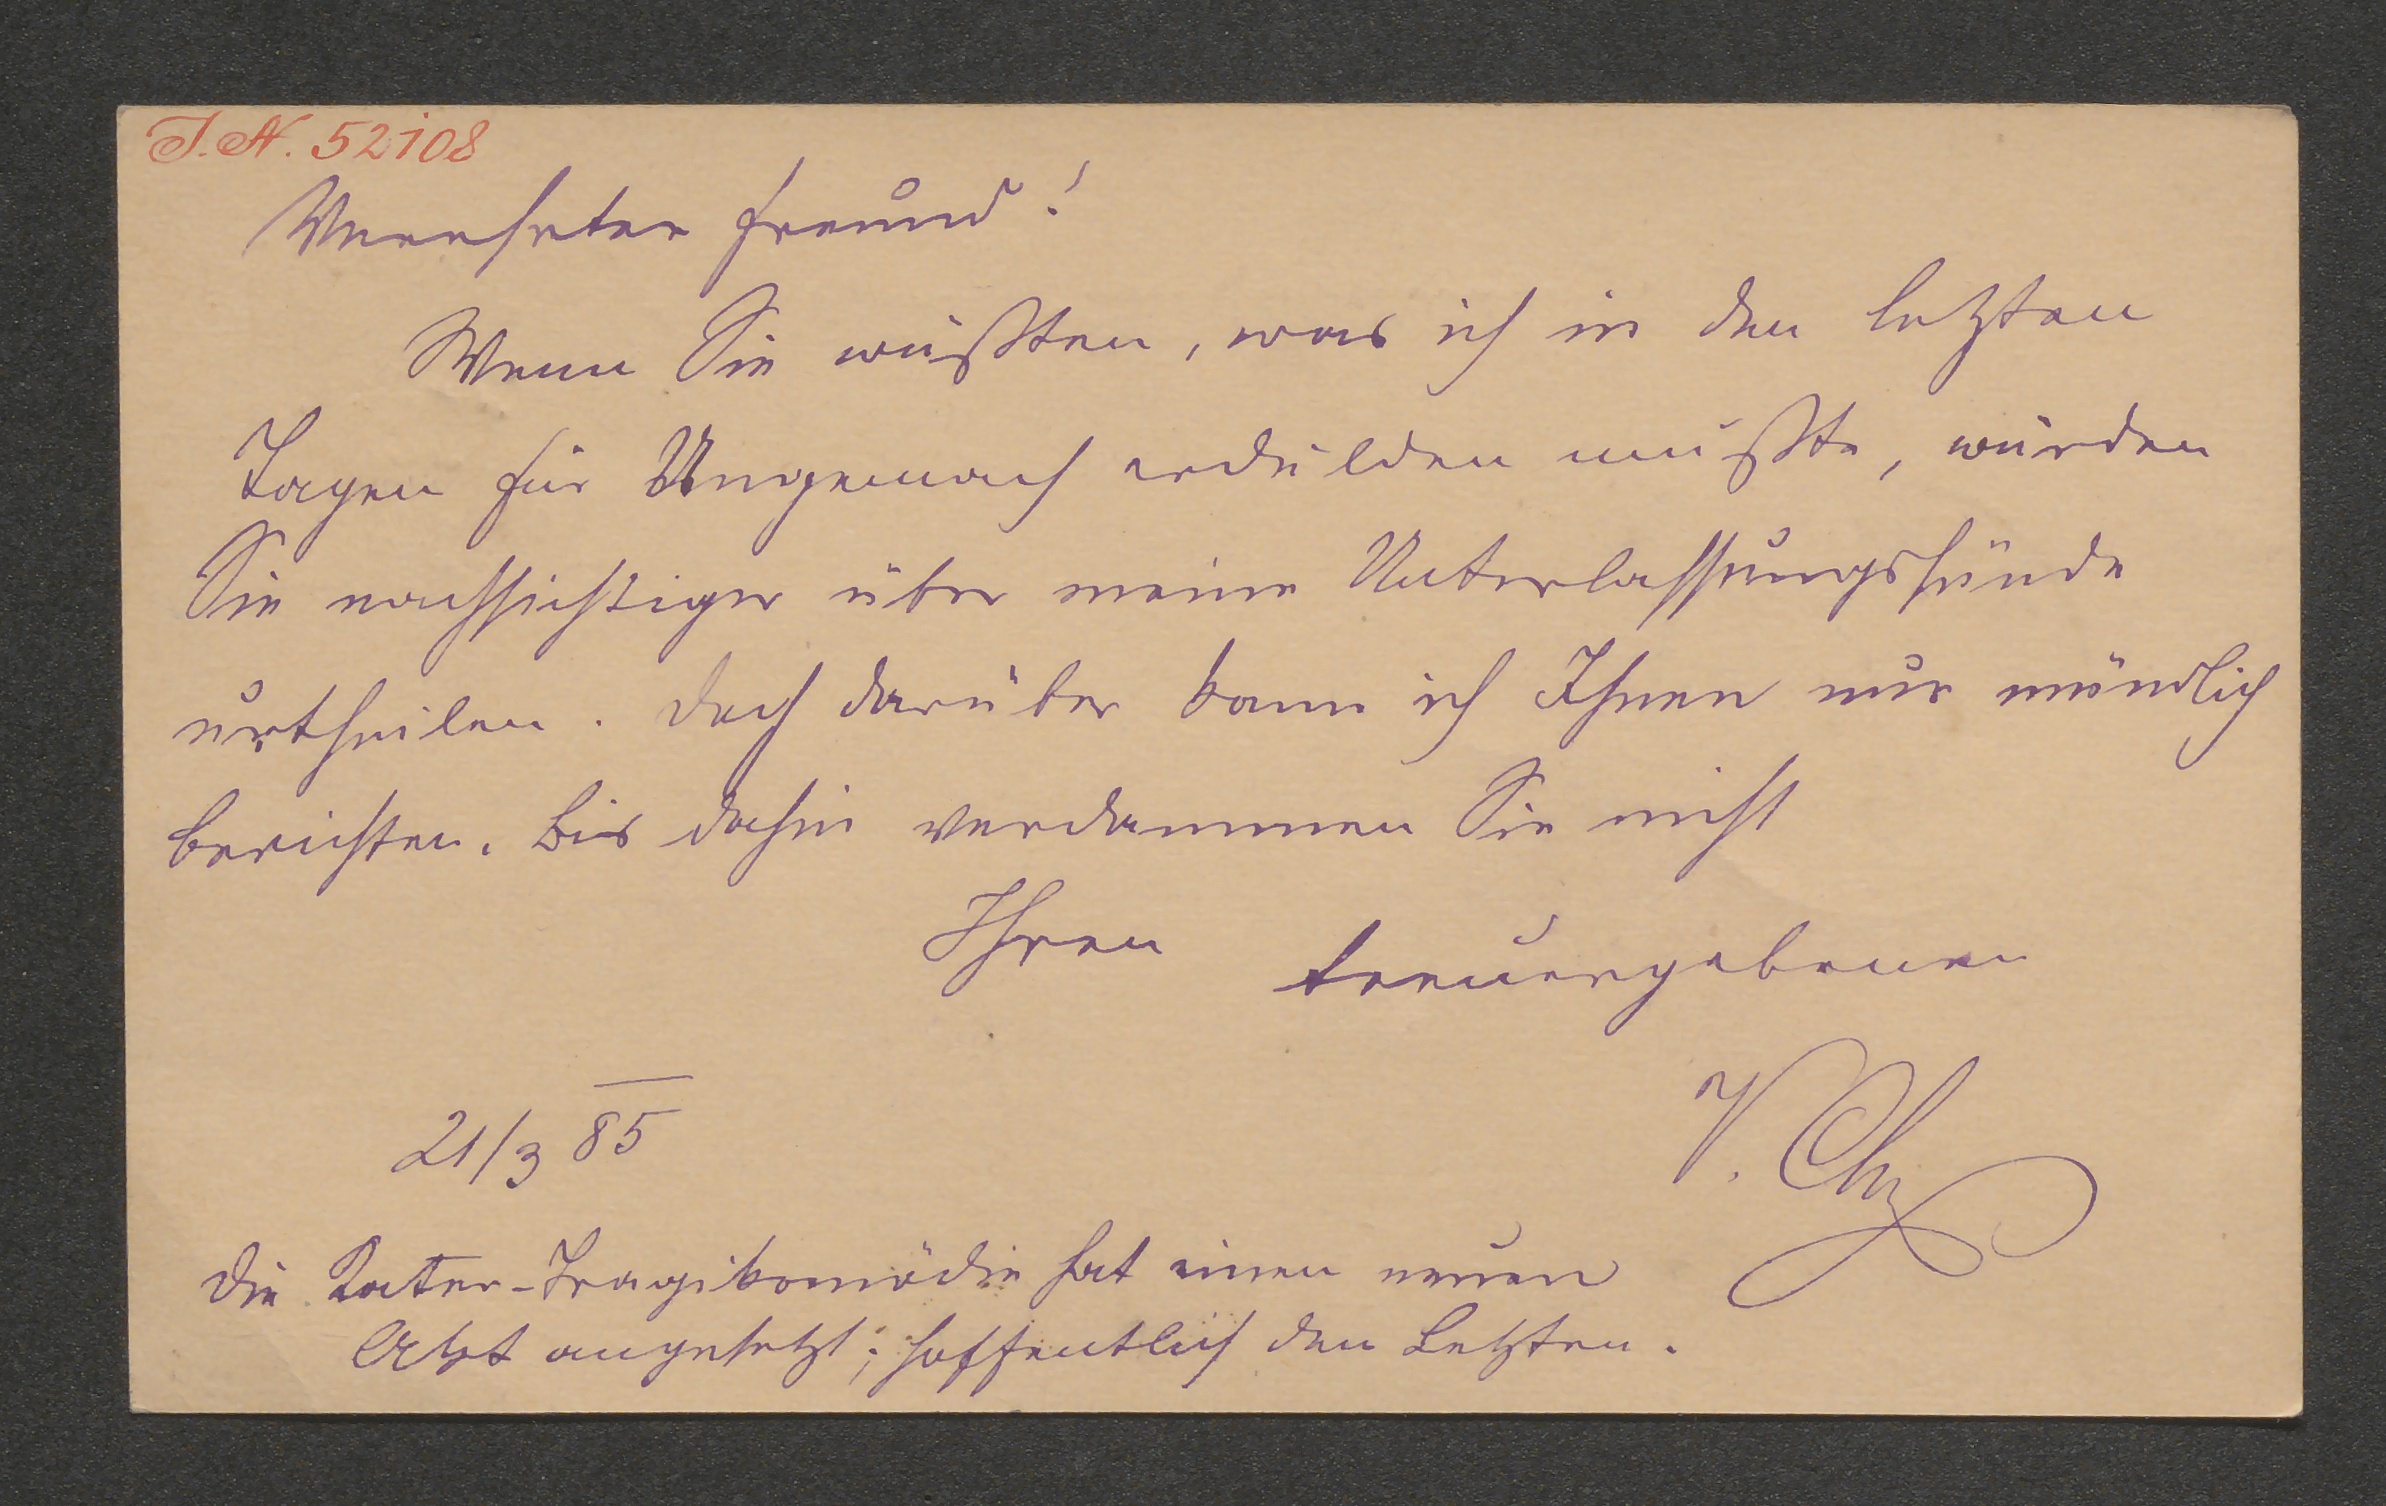 I.N. 52108
Verehrter Freund!
Wenn Sie wüßten, was ich in den letzten
Tagen für Ungemach erdulden mußte, würden
Sie nachsichtiger über meine Unterlassungssünde
urtheilen. Doch darüber kann ich Ihnen nur mündlich
berichten. Bis dahin verdammen Sie nicht
Ihren treuergebenen
V. Chz
21/3 85
Die Kater-Tragikomödie hat einen neuen
Akt angesetzt; hoffentlich den Letzten.